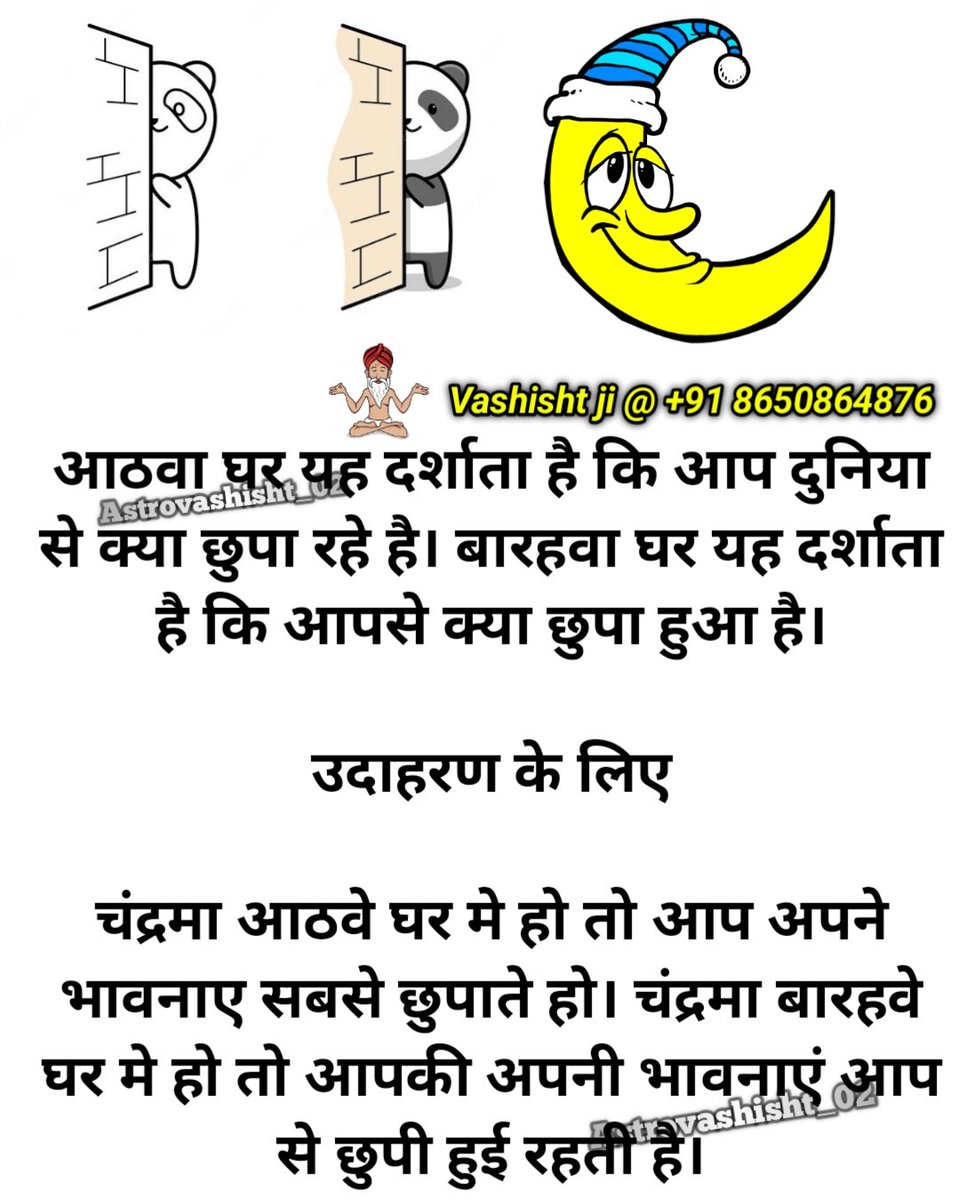 Vashisht ji @ +91 8650864876
आठवा घर यह दर्शाता है कि आप दुनिया
Astrovashisht_02
से क्या छुपा रहे है। बारहवा घर यह दर्शाता
है कि आपसे क्या छुपा हुआ है।
उदाहरण के लिए
चंद्रमा आठवे घर मे हो तो आप अपने
भावनाए सबसे छुपाते हो। चंद्रमा बारहवे
घर मे हो तो आपकी अपनी भावनाएं आप
Astrovashisht_02
से छुपी हुई रहती है।